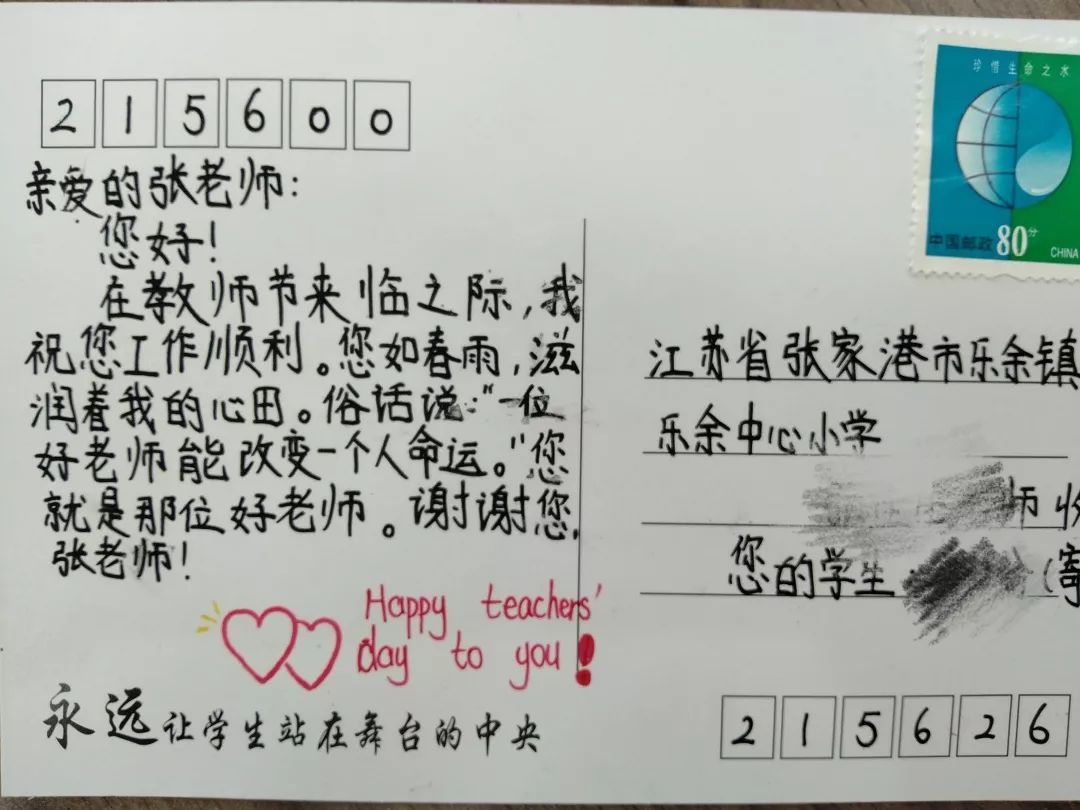 215600
亲爱的张老师:
您好!
在教师节来临之际,我
祝您工作顺利。您如春雨,滋
润着我的心田。俗话说:“一位
好老师能改变一个人命运。”您
就是那位好老师。谢谢您,
张老师!
Happy teachers'
day to you!
永远让学生站在舞台的中央
珍惜生命之水
中国邮政80分
CHINA
江苏省张家港市乐余镇
乐余中心小学
师收
您的学生 (寄
215626